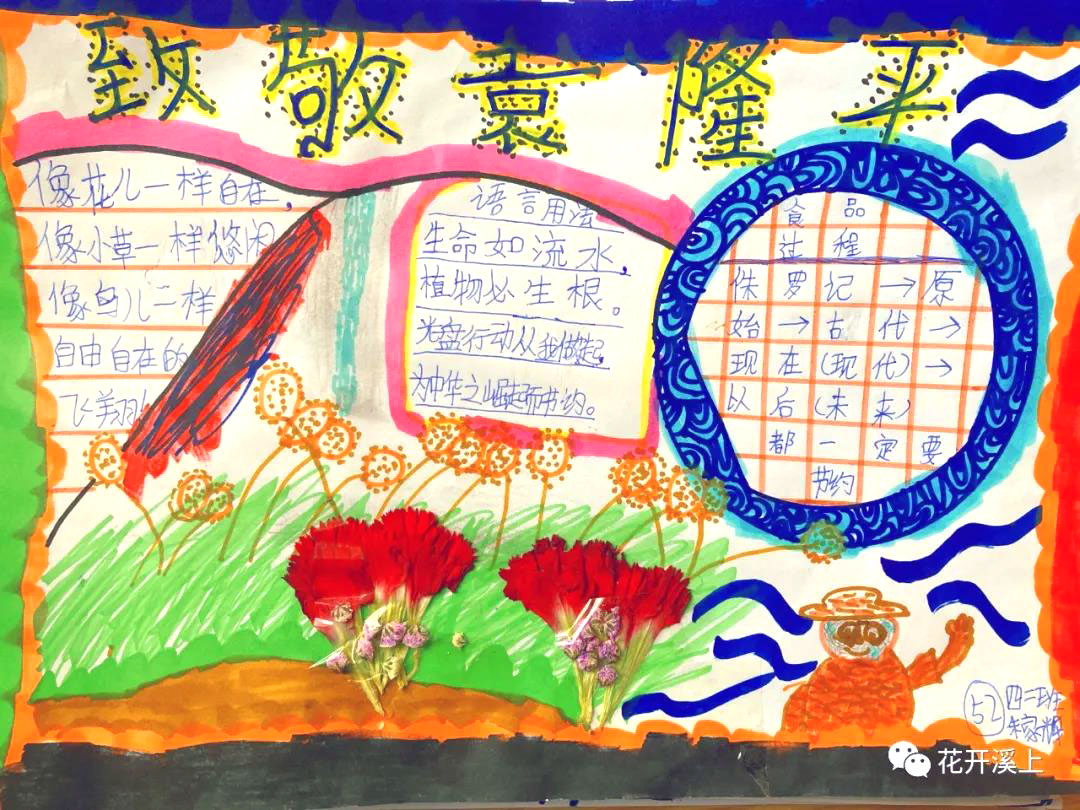 致敬袁隆平
像花儿一样自在,
像小草一样悠闲
像鸟儿一样
自由自在的
飞翔
语言用法
生命如流水,
植物必生根。
光盘行动从我做起,
为中华之崛起而节约。
食品
过程
侏罗记→原
始→古代→
现在(现代)→
以后(未来)
都一定要
节约
52
四二班
花开溪上